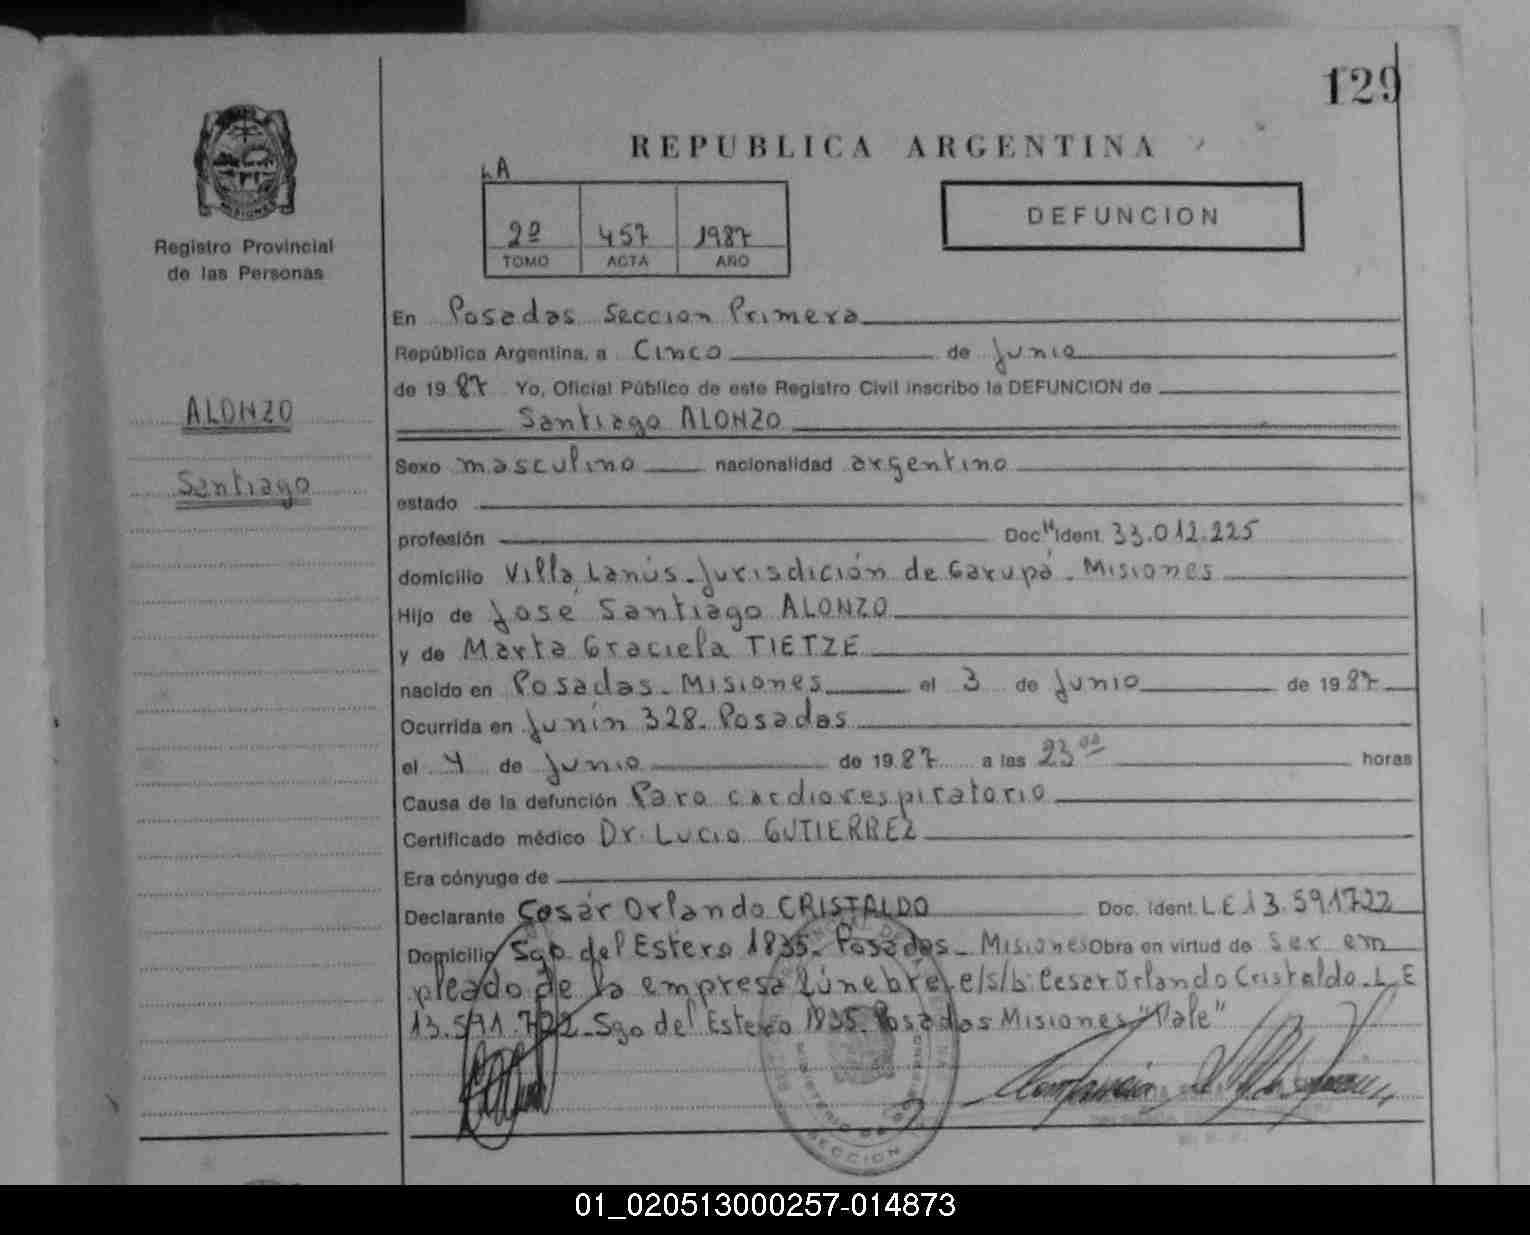 129
REPUBLICA ARGENTINA
MISIONES
Registro Provincial
de las Personas
LA
2º 457 1987
TOMO ACTA AÑO
DEFUNCION
ALONZO
Santiago
En Posadas Seccion Primera
República Argentina, a Cinco de Junio
de 19 87 Yo, Oficial Público de este Registro Civil inscribo la DEFUNCION de
Santiago ALONZO
Sexo masculino nacionalidad argentino
estado
profesión Doc. Ident. 33.012.225
domicilio Villa Lanús-Jurisdición de Garupá - Misiones
Hijo de José Santiago ALONZO
y de Marta Graciela TIETZE
nacido en Posadas - Misiones el 3 de Junio de 19 87
Ocurrida en Junín 328 - Posadas
el 4 de Junio de 19 87 a las 23 00 horas
Causa de la defunción Paro cardiorespiratorio
Certificado médico Dr. Lucio GUTIERREZ
Era cónyuge de
Declarante Cesár Orlando CRISTALDO Doc. Ident. L.E 13.591722
Domicilio Sgo. del Estero 1835 - Posadas - Misiones Obra en virtud de Ser em
pleado de la empresa fúnebre e/s/b: Cesar Orlando Cristaldo - L.E
13.591.722 - Sgo del Estero 1835. Posadas Misiones "Vale"
SECCION
01_020513000257-014873